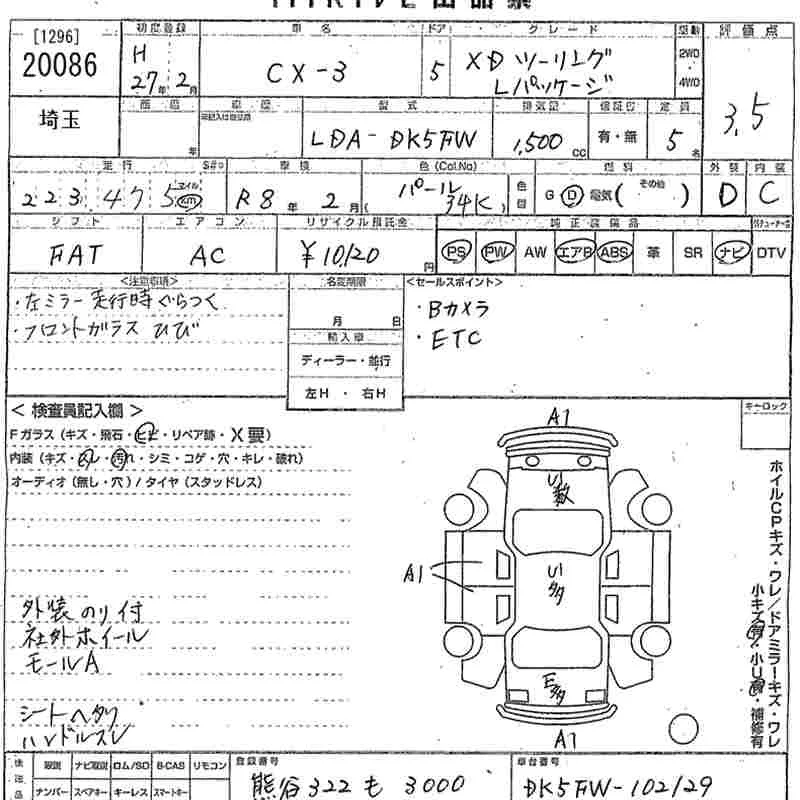 [1296]
20086
初度登録
車名
ドア
グレード
駆動
評価点
H
27年2月
CX-3
5
XDツーリング
Lパッケージ
2WD
4WD
3.5
埼玉
車歴
型式
排気量
保証書
定員
年
LDA-DK5FW
1,500cc
有・無
5名
走行
S#
車検
色(Col.No)
燃料
外装
内装
223,475
マイル
km
R8年2月
パール
34K
色替
G D 電気( その他 )
D
C
シフト
エアコン
リサイクル預託金
純正装備品
FAT
AC
¥10,120円
PS PW AW エアB ABS 革 SR ナビ DTV
<注意事項>
名変期限
<セールスポイント>
・左ミラー走行時ぐらつく
・フロントガラスひび
月 日
輸入車
ディーラー・並行
左H・右H
・Bカメラ
・ETC
<検査員記入欄>
キーロック
Fガラス(キズ・飛石・ヒビ・リペア跡・X要)
内装(キズ・スレ・汚れ・シミ・コゲ・穴・キレ・破れ)
オーディオ(無し・穴)/タイヤ(スタッドレス)
A1
U1
数
A1
U1
多
E多
A1
外装のり付
社外ホイール
モールA
シートヘタリ
ハンドルスレ
ホイルCPキズ・ワレ/ドアミラーキズ・ワレ
小キズ有・小U有・補修有
後送品
取説 ナビ取説 ロム/SD B-CAS リモコン
ナンバー スペアキー キーレス スマートキー
登録番号
熊谷322も3000
車台番号
DK5FW-102129